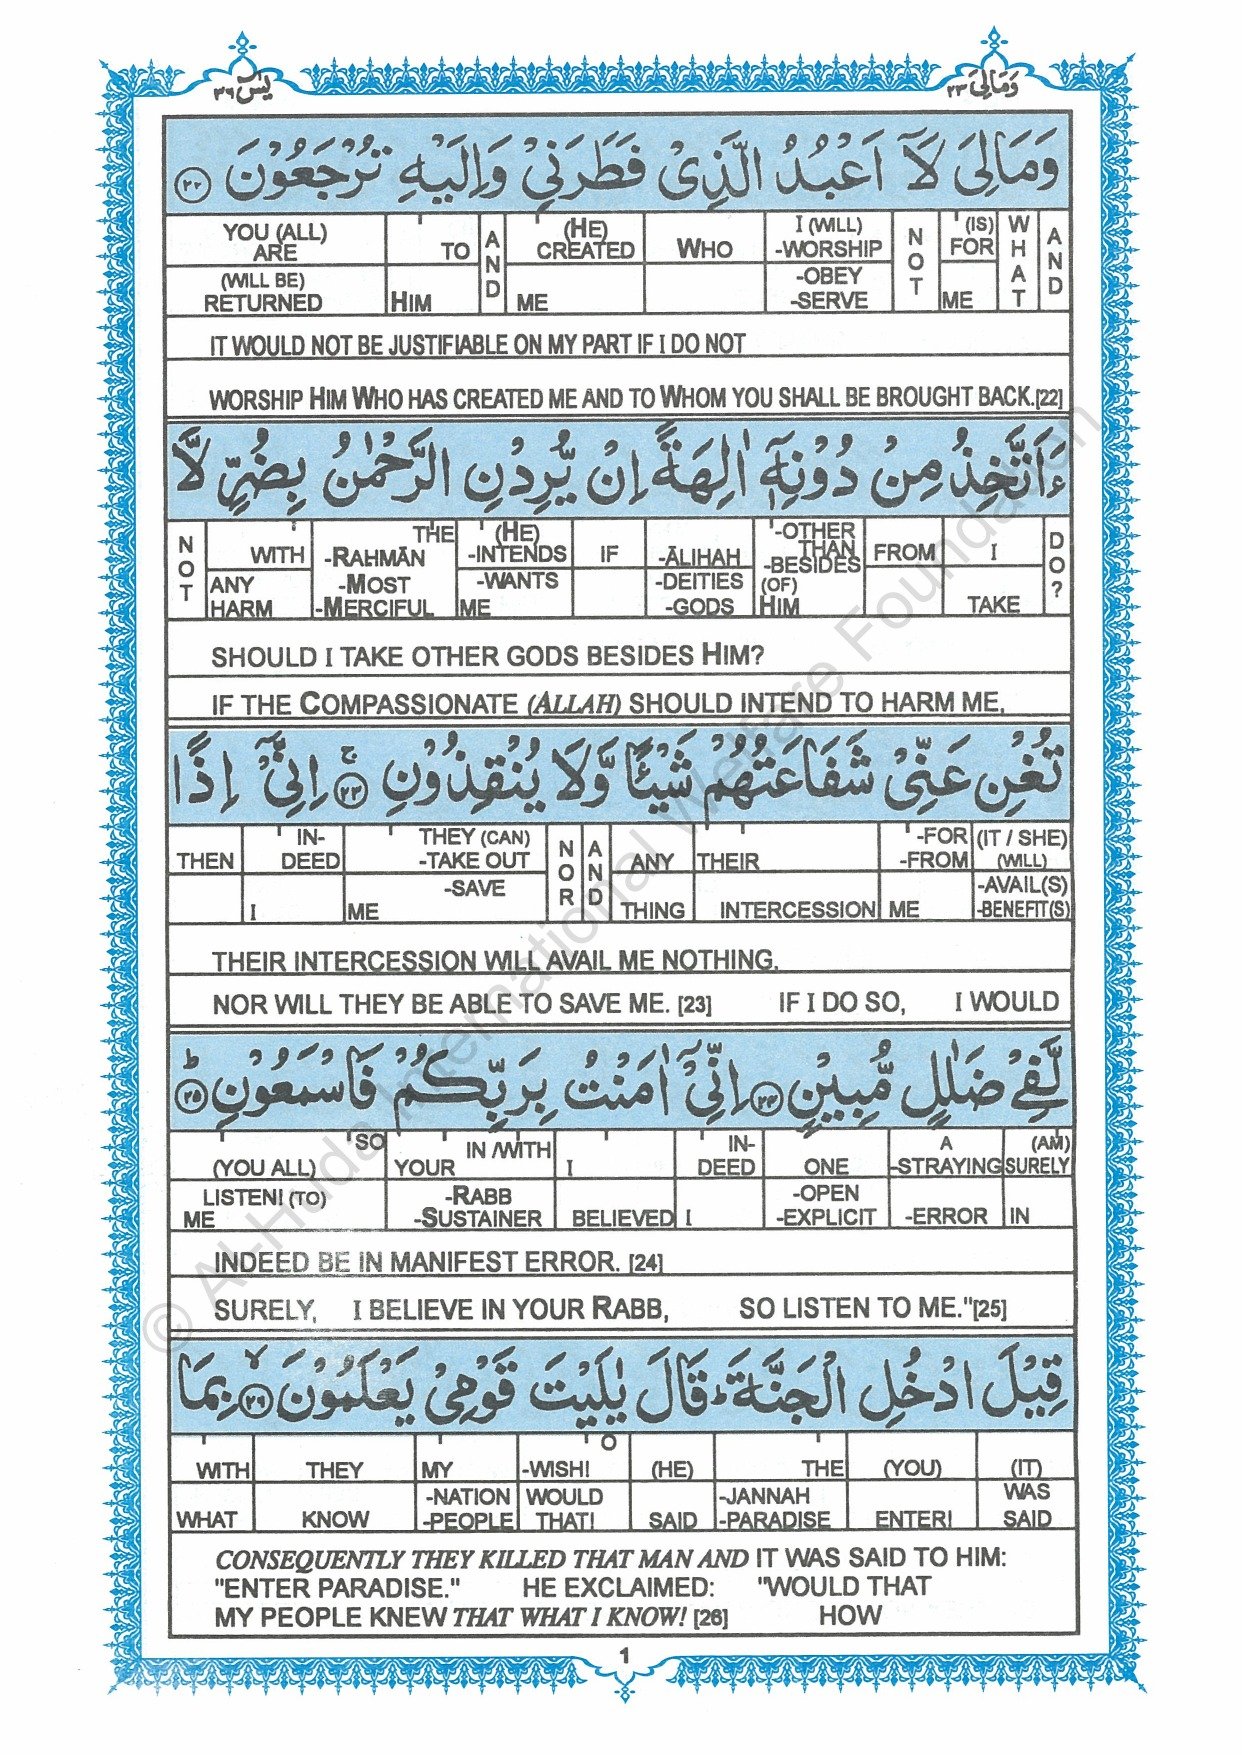 يٰسٓ ٣٦
وَمَالِىَ ٢٣
وَمَالِىَ لَآ اَعْبُدُ الَّذِىْ فَطَرَنِىْ وَاِلَيْهِ تُرْجَعُوْنَ ٢٢
YOU (ALL) ARE | TO | AND | (HE) CREATED | WHO | I (WILL) -WORSHIP | NOT | (IS) FOR | WHAT | AND
(WILL BE) RETURNED | HIM | ME | -OBEY -SERVE | ME
IT WOULD NOT BE JUSTIFIABLE ON MY PART IF I DO NOT
WORSHIP HIM WHO HAS CREATED ME AND TO WHOM YOU SHALL BE BROUGHT BACK.[22]
ءَاَتَّخِذُ مِنْ دُوْنِهٖٓ اٰلِهَةً اِنْ يُّرِدْنِ الرَّحْمٰنُ بِضُرٍّ لَّا
NOT | WITH | THE -RAHMĀN | (HE) -INTENDS | IF | -ĀLIHAH | -OTHER THAN -BESIDES | FROM | I | DO?
ANY HARM | -MOST -MERCIFUL | -WANTS ME | -DEITIES -GODS | (OF) HIM | TAKE
SHOULD I TAKE OTHER GODS BESIDES HIM?
IF THE COMPASSIONATE (ALLAH) SHOULD INTEND TO HARM ME,
تُغْنِ عَنِّىْ شَفَاعَتُهُمْ شَيْـًٔا وَّلَا يُنْقِذُوْنِ ۚ ٢٣ اِنِّىْٓ اِذًا
THEN | IN-DEED | THEY (CAN) -TAKE OUT | NOR | AND | ANY | THEIR | -FOR -FROM | (IT / SHE) (WILL)
I | -SAVE ME | THING | INTERCESSION | ME | -AVAIL(S) -BENEFIT(S)
THEIR INTERCESSION WILL AVAIL ME NOTHING,
NOR WILL THEY BE ABLE TO SAVE ME. [23] IF I DO SO, I WOULD
لَّفِىْ ضَلٰلٍ مُّبِيْنٍ ٢٤ اِنِّىْٓ اٰمَنْتُ بِرَبِّكُمْ فَاسْمَعُوْنِ ؕ ٢٥
SO (YOU ALL) | IN /WITH YOUR | I | IN-DEED | ONE | A -STRAYING | (AM) SURELY
LISTEN! (TO) ME | -RABB -SUSTAINER | BELIEVED | I | -OPEN -EXPLICIT | -ERROR | IN
INDEED BE IN MANIFEST ERROR. [24]
SURELY, I BELIEVE IN YOUR RABB, SO LISTEN TO ME."[25]
قِيْلَ ادْخُلِ الْجَنَّةَ ؕ قَالَ يٰلَيْتَ قَوْمِىْ يَعْلَمُوْنَ ۙ ٢٦ بِمَا
WITH | THEY | MY | -WISH! | (HE) | THE | (YOU) | (IT)
WHAT | KNOW | -NATION -PEOPLE | WOULD THAT! | SAID | -JANNAH -PARADISE | ENTER! | WAS SAID
CONSEQUENTLY THEY KILLED THAT MAN AND IT WAS SAID TO HIM:
"ENTER PARADISE." HE EXCLAIMED: "WOULD THAT
MY PEOPLE KNEW THAT WHAT I KNOW! [26] HOW
1
© Al-Huda International Welfare Foundation